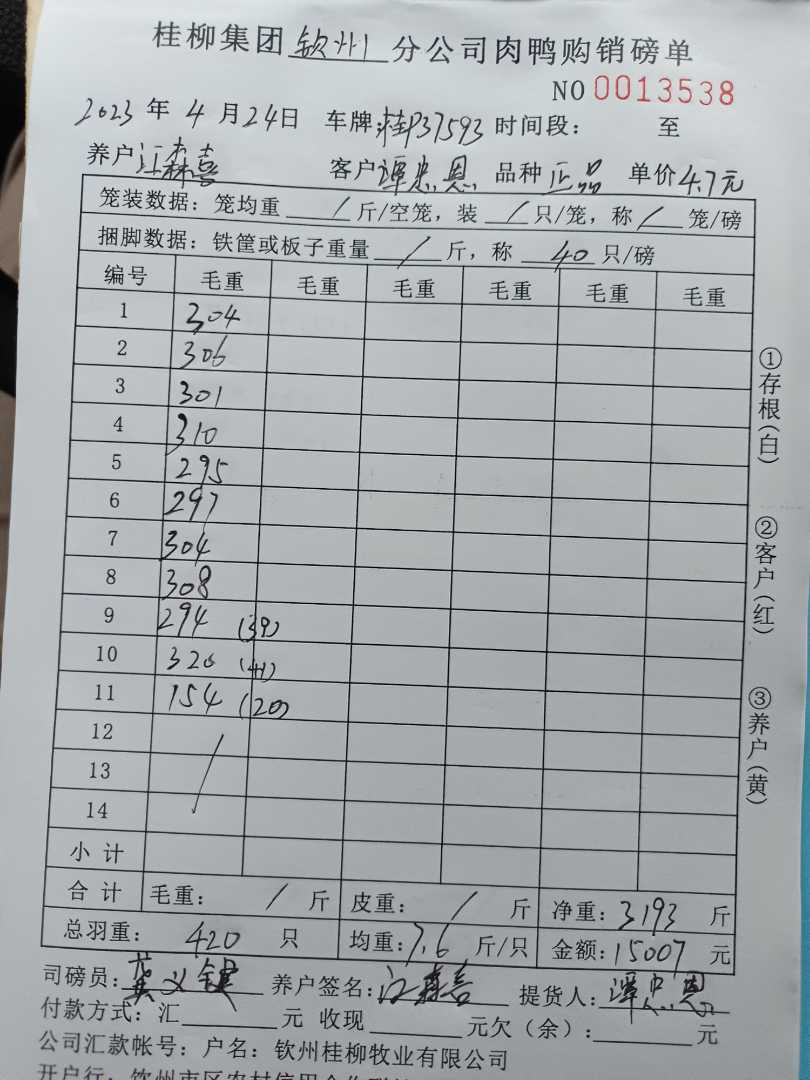 桂柳集团 钦州 分公司肉鸭购销磅单
NO 0013538
2023 年 4 月 24日 车牌:桂P37593 时间段: 至
养户 江森喜 客户 谭忠恩 品种 正品 单价 4.7元
笼装数据:笼均重 / 斤/空笼,装 / 只/笼,称 / 笼/磅
捆脚数据:铁筐或板子重量 / 斤,称 40 只/磅
编号 毛重 毛重 毛重 毛重 毛重 毛重
1 304
2 306
3 301
4 310
5 295
6 297
7 304
8 308
9 294 (39)
10 320 (41)
11 154 (20)
12 /
13
14
小计
合计 毛重: / 斤 皮重: / 斤 净重:3193 斤
总羽重: 420 只 均重:7.6 斤/只 金额:15007 元
司磅员:龚义键 养户签名:江森喜 提货人:谭忠恩
付款方式:汇 元 收现 元欠(余): 元
公司汇款帐号:户名:钦州桂柳牧业有限公司
开户行:钦州市区农村信用合作联社
①存根(白)
②客户(红)
③养户(黄)